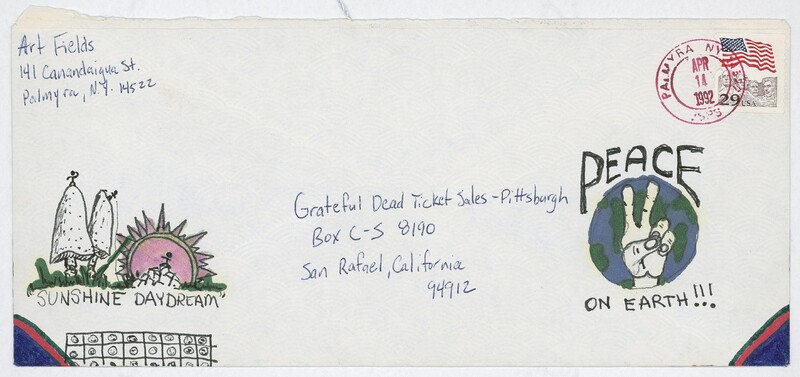 Art Fields
141 Canandaigua St.
Palmyra, N.Y. 14522
PALMYRA NY
APR
14
1992
USPS
29 USA
Grateful Dead Ticket Sales - Pittsburgh
Box C-S 8190
San Rafael, California
94912
"SUNSHINE DAYDREAM"
PEACE
ON EARTH!!!